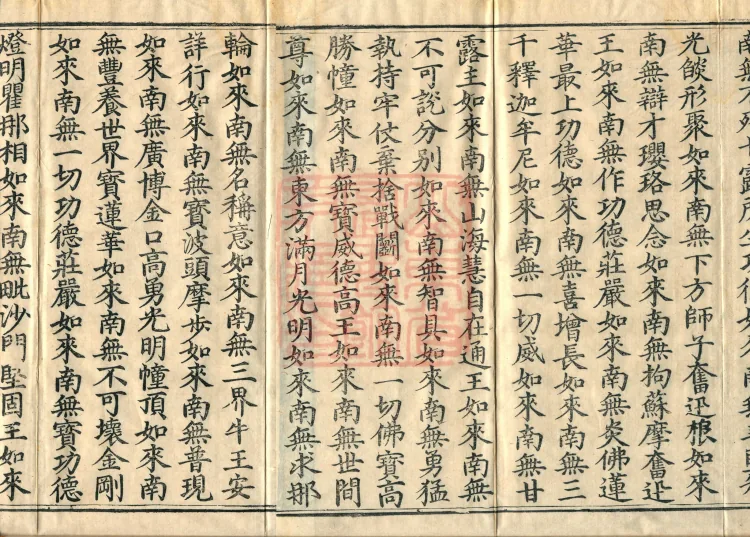 光燄形聚如來南無下方師子奮迅根如來
南無辯才瓔珞思念如來南無拘蘇摩奮迅
王如來南無作功德莊嚴如來南無炎佛蓮
華最上功德如來南無喜增長如來南無三
千釋迦牟尼如來南無一切威如來南無甘
露主如來南無山海慧自在通王如來南無
不可說分別如來南無智具如來南無勇猛
執持牢仗棄捨戰鬭如來南無一切佛寶高
勝幢如來南無寶威德高王如來南無世間
尊如來南無東方滿月光明如來南無求那
輪如來南無名稱意如來南無三界牛王安
詳行如來南無寶波頭摩步如來南無普現
如來南無廣博金口高勇光明幢頂如來南
無豐養世界寶蓮華如來南無不可壞金剛
如來南無一切功德莊嚴如來南無寶功德
燈明瞿那相如來南無毗沙門堅固王如來